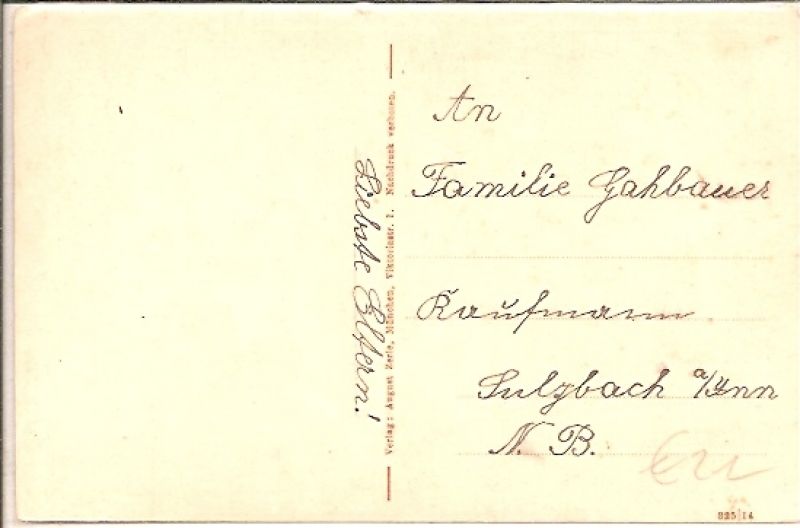 Liebste Eltern!
Verlag: August Zerle, München, Viktoriastr. 1. Nachdruck verboten.
An
Familie Gahbauer
Kaufmann
Sulzbach a/Inn
N. B.
825/14